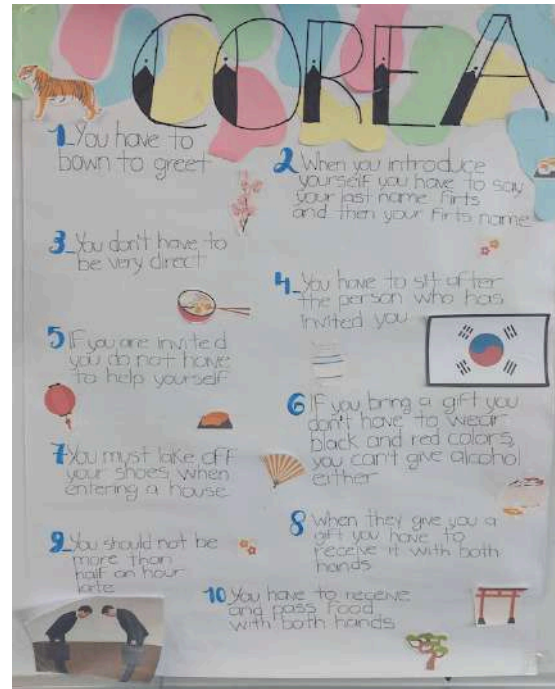 COREA
1_You have to
bown to greet
2_When you introduce
yourself you have to say
your last name firts
and then your firts name
3_You don't have to
be very direct
4_You have to sit after
the person who has
invited you
5 If you are invited
you do not have
to help yourself
6 If you bring a gift you
don't have to wear
black and red colors,
you can't give alcohol
either
7 You must take off
your shoes when
entering a house
8 When they give you a
gift you have to
receive it with both
hands
9_You should not be
more than
half an hour
late
10 You have to receive
and pass food
with both hands